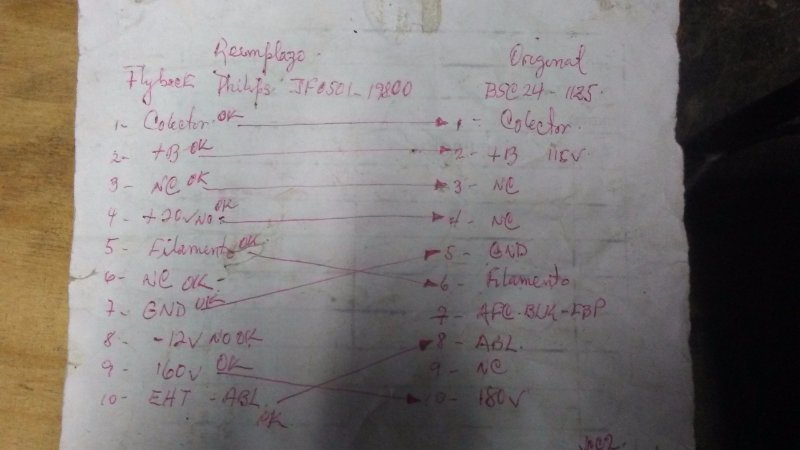 Reemplazo. Original
Flyback Philips JF0501-19800 BSC24-1125
1- Colector OK 1- Colector.
2- +B OK 2- +B 115V.
3- NC OK 3- NC
4- +26V NO OK 4- NC
5- Filamento OK 5- GND
6- NC OK 6- Filamento
7- GND OK 7- AFC-BLK-FBP
8- -12V NO OK 8- ABL.
9- 160V OK 9- NC
10- EHT - ABL. OK 10- 180V